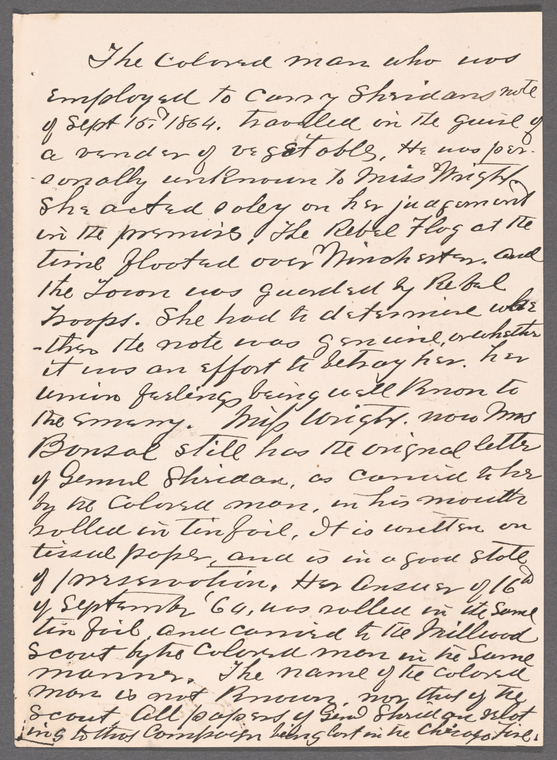 The Colored man who was
employed to carry Sheridans note
of Sept 15th 1864. travelled in the guise of
a vender of vegetables, He was per-
sonally unknown to Miss Wright,
She acted soley on her judgement
in the premises, The Rebel Flag at the
time floated over Winchester. and
the Town was guarded by Rebel
Troops. She had to determine whe
-ther the note was genuine, or whether
it was an effort to betray her. her
union feelings being well Known to
the enemy. Miss Wright. now Mrs
Bonsal still has the orignal letter
of Genrl Sheridan, as carried to her
by the Colored man, in his mouth
rolled in tin foil, It is written on
tissue paper, and is in a good state
of preservation. Her Answer of 16th
of September '64, was rolled in the Same
tin foil, and carried to the Millwood
Scout by the Colored man in the Same
manner. The name of the Colored
man is not Known, nor that of the
Scout. All papers of Genl Sheridan relat
ing to that Campaign being lost in the Chicago Fire.